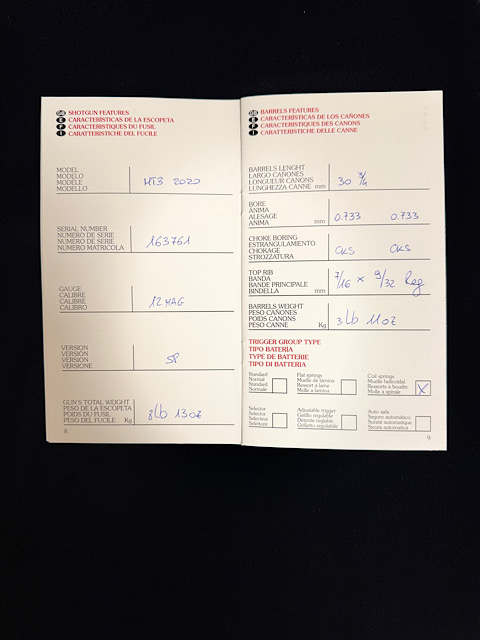 GB SHOTGUN FEATURES
E CARACTERÍSTICAS DE LA ESCOPETA
F CARACTERISTIQUES DU FUSIL
I CARATTERISTICHE DEL FUCILE
MODEL
MODELO
MODÈLE
MODELLO
MT3 2020
SERIAL NUMBER
NUMERO DE SERIE
NUMERO DE SERIE
NUMERO MATRICOLA
163761
GAUGE
CALIBRE
CALIBRE
CALIBRO
12 MAG
VERSION
VERSIÓN
VERSION
VERSIONE
SP
GUN'S TOTAL WEIGHT
PESO DE LA ESCOPETA
POIDS DU FUSIL
PESO DEL FUCILE Kg
8 Lb 13 oz
8
GB BARRELS FEATURES
E CARACTERÍSTICAS DE LOS CAÑONES
F CARACTERISTIQUES DES CANONS
I CARATTERISTICHE DELLE CANNE
BARRELS LENGHT
LARGO CAÑONES
LONGUEUR CANONS
LUNGHEZZA CANNE mm
30 3/4
BORE
ANIMA
ALESAGE
ANIMA mm
0.733 0.733
CHOKE BORING
ESTRANGULAMIENTO
CHOKAGE
STROZZATURA
CKS CKS
TOP RIB
BANDA
BANDE PRINCIPALE
BINDELLA mm
7/16 x 9/32 Reg
BARRELS WEIGHT
PESO CAÑONES
POIDS CANONS
PESO CANNE Kg
3 Lb 11 oz
TRIGGER GROUP TYPE
TIPO BATERÍA
TYPE DE BATTERIE
TIPO DI BATTERIA
Standard
Normal
Standard
Normale
Flat springs
Muelle de lámina
Ressort à lame
Molle a lamina
Coil springs
Muelle helicoidal
Ressorts à boudin
Molle a spirale
X
Selector
Selector
Sélecteur
Selettore
Adjustable trigger
Gatillo regulable
Détente reglable
Grilletto regolabile
Auto safe
Seguro automático
Sureté automatique
Sicura automatica
9